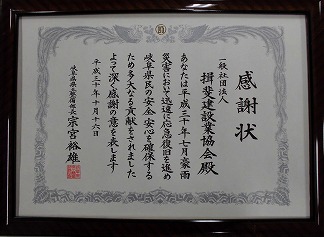 感謝状
一般社団法人
揖斐建設業協会殿
あなたは平成三十年七月豪雨
災害において迅速に応急復旧を進め
岐阜県民の安全・安心を確保する
ため多大なる貢献をされました
よって深く感謝の意を表します
平成三十年十月十六日
岐阜県県土整備部長 宗宮裕雄